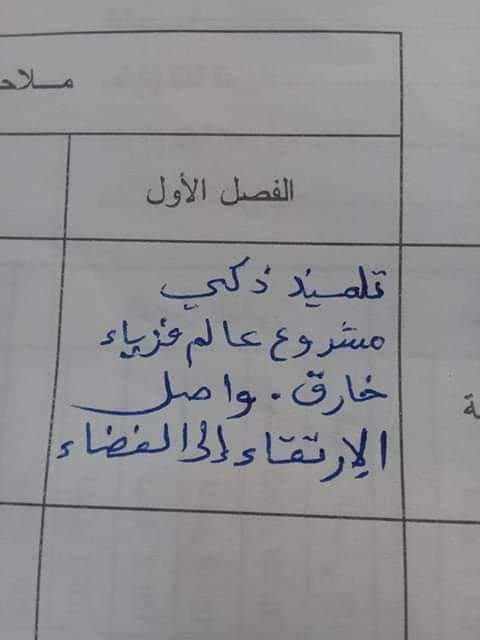 ملاحـ
الفصل الأول
تلميذ ذكي
مشروع عالم فزياء
خارق . واصل
الإرتقاء إلى الفضاء
ة